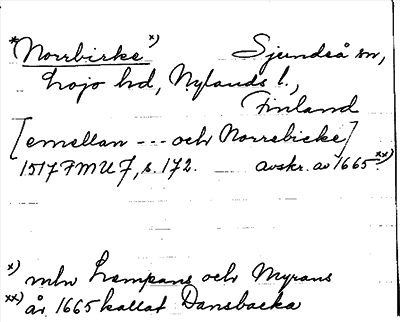 *Norrbirke x) Sjundeå sn,
Lojo hd, Nylands l.,
Finland
[emellan --- och Norrebicke]
1517 FMU 7, s. 172. avskr. av 1665 xx)
x) mln Lempans och Myrans
xx) år 1665 kallat Dansbacka